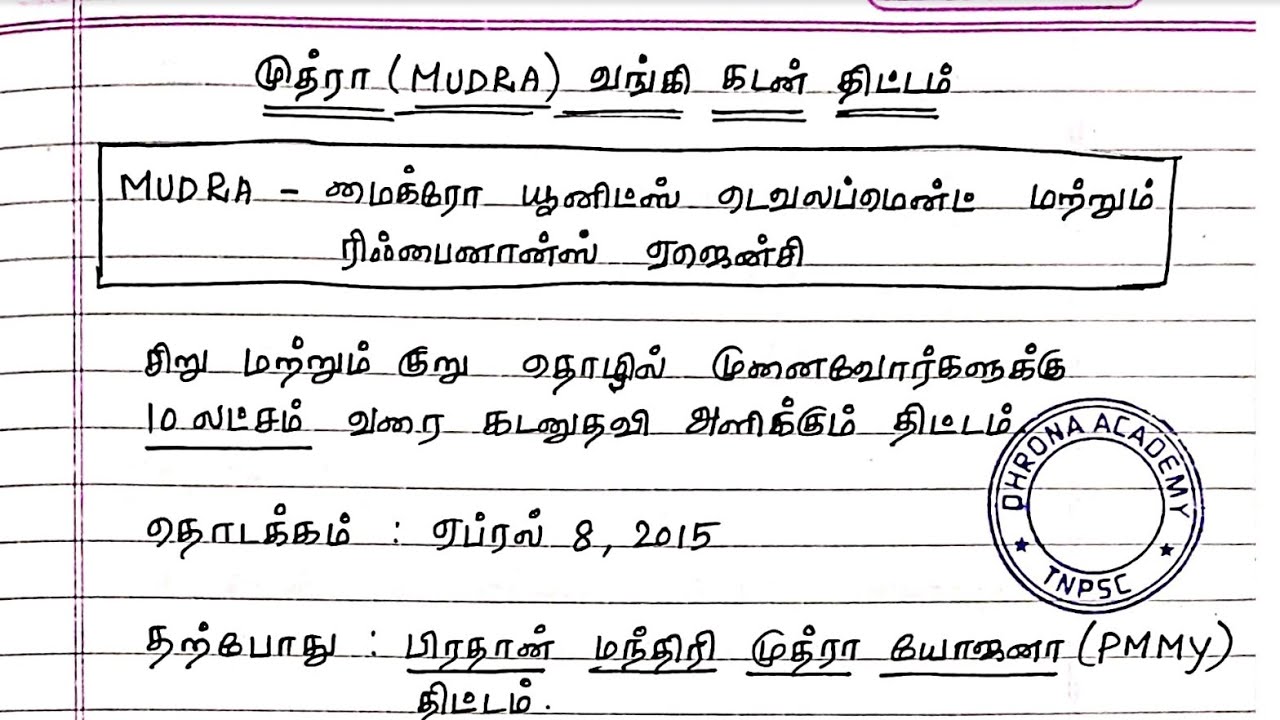 முத்ரா (MUDRA) வங்கி கடன் திட்டம்
MUDRA - மைக்ரோ யூனிட்ஸ் டெவலப்மெண்ட் மற்றும்
ரிஃபைனான்ஸ் ஏஜென்சி
சிறு மற்றும் குறு தொழில் முனைவோர்களுக்கு
10 லட்சம் வரை கடனுதவி அளிக்கும் திட்டம்
DHRONA ACADEMY
TNPSC
தொடக்கம் : ஏப்ரல் 8, 2015
தற்போது : பிரதான் மந்திரி முத்ரா யோஜனா (PMMY)
திட்டம்.